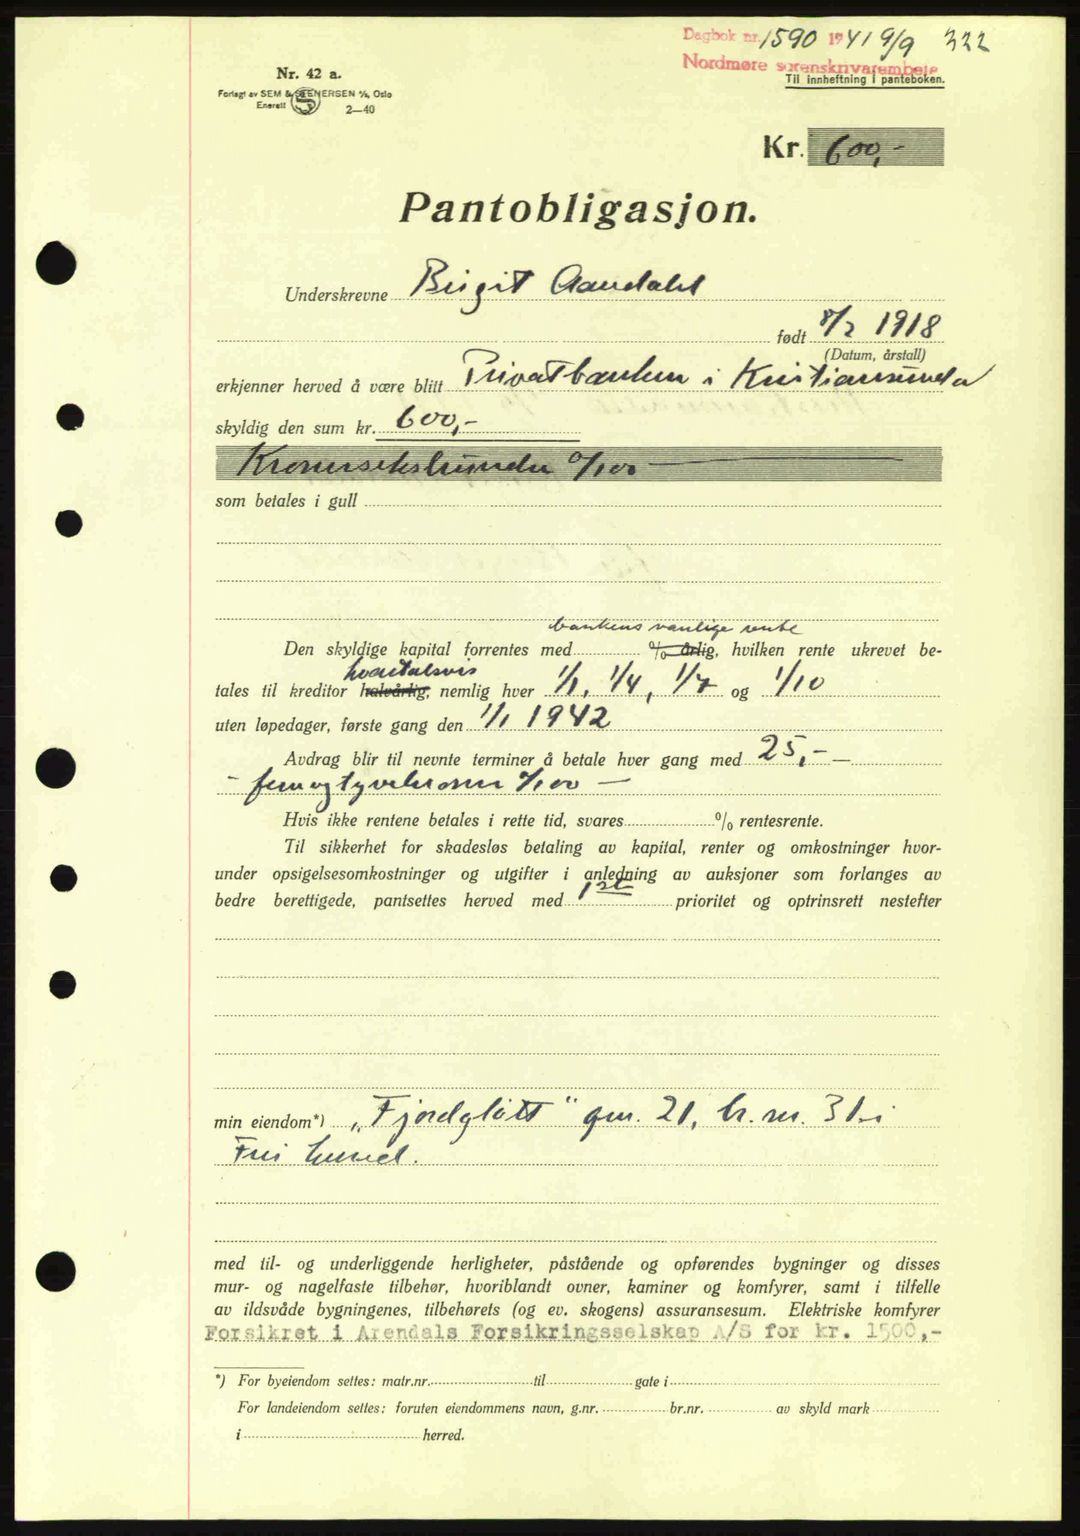 Dagbok nr. 1590 1941 9/9 322
Nordmøre sorenskrivarembete
Til innheftning i panteboken.
Nr. 42 a.
Forlagt av SEM & STENERSEN A/S, Oslo
Enerett 2—40
Kr. 600,-
Pantobligasjon.
Underskrevne Birgit Aandahl
født 8/2 1918
(Datum, årstall)
erkjenner herved å være blitt Privatbanken i Kristiansund
skyldig den sum kr. 600,-
Kronersekshundre 0/100
som betales i gull
bankens vanlige rente
Den skyldige kapital forrentes med % årlig, hvilken rente ukrevet be-
kvartalsvis
tales til kreditor halvårlig, nemlig hver 1/1, 1/4, 1/7 og 1/10
uten løpedager, første gang den 1/1 1942
Avdrag blir til nevnte terminer å betale hver gang med 25,- —
- femogtyvekroner 0/100 -
Hvis ikke rentene betales i rette tid, svares % rentesrente.
Til sikkerhet for skadesløs betaling av kapital, renter og omkostninger hvor-
under opsigelsesomkostninger og utgifter i anledning av auksjoner som forlanges av
bedre berettigede, pantsettes herved med 1ste prioritet og optrinsrett nestefter
min eiendom*) „Fjordgløtt“ gnr. 21, br. nr. 31 i
Frei herred.
med til- og underliggende herligheter, påstående og opførendes bygninger og disses
mur- og nagelfaste tilbehør, hvoriblandt ovner, kaminer og komfyrer, samt i tilfelle
av ildsvåde bygningenes, tilbehørets (og ev. skogens) assuransesum. Elektriske komfyrer
Forsikret i Arendals Forsikringsselskap A/S for kr. 1500,-
*) For byeiendom settes: matr.nr. til gate i
For landeiendom settes: foruten eiendommens navn, g.nr. br.nr. av skyld mark
i herred.